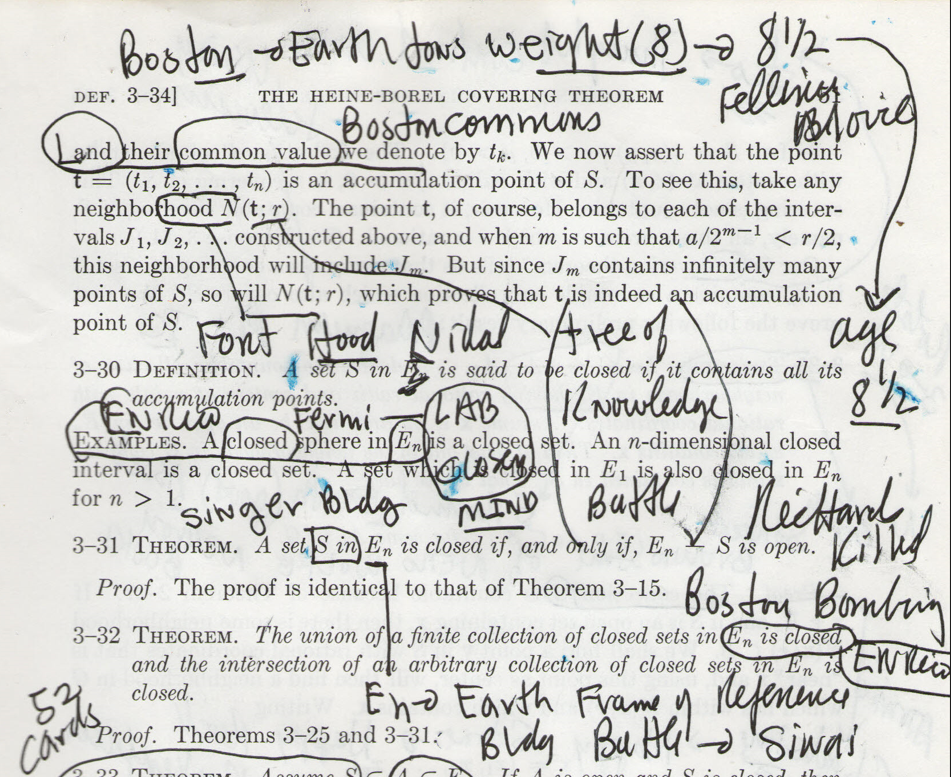 Boston → Earth tows weight (8) → 8 1/2
DEF. 3–34] THE HEINE-BOREL COVERING THEOREM
Boston commons
and their common value we denote by tₖ. We now assert that the point
t = (t₁, t₂, . . . , tₙ) is an accumulation point of S. To see this, take any
neighborhood N(t; r). The point t, of course, belongs to each of the inter-
vals J₁, J₂, . . . constructed above, and when m is such that a/2ᵐ⁻¹ < r/2,
this neighborhood will include Jₘ. But since Jₘ contains infinitely many
points of S, so will N(t; r), which proves that t is indeed an accumulation
point of S.
Font Hood Nidal Tree of age
3–30 DEFINITION. A set S in Eₙ is said to be closed if it contains all its
accumulation points.
Enrico Fermi LAB Knowledge 8 1/2
EXAMPLES. A closed sphere in Eₙ is a closed set. An n-dimensional closed
interval is a closed set. A set which is closed in E₁ is also closed in Eₙ
for n > 1.
Singer Bldg MIND Battle
3–31 THEOREM. A set S in Eₙ is closed if, and only if, Eₙ – S is open.
Killed
Proof. The proof is identical to that of Theorem 3–15.
Boston Bombing
3–32 THEOREM. The union of a finite collection of closed sets in Eₙ is closed
and the intersection of an arbitrary collection of closed sets in Eₙ is
Enrico
closed.
52 Cards
En → Earth Frame of Reference
Proof. Theorems 3–25 and 3–31.
Bldg Battle → Sinai